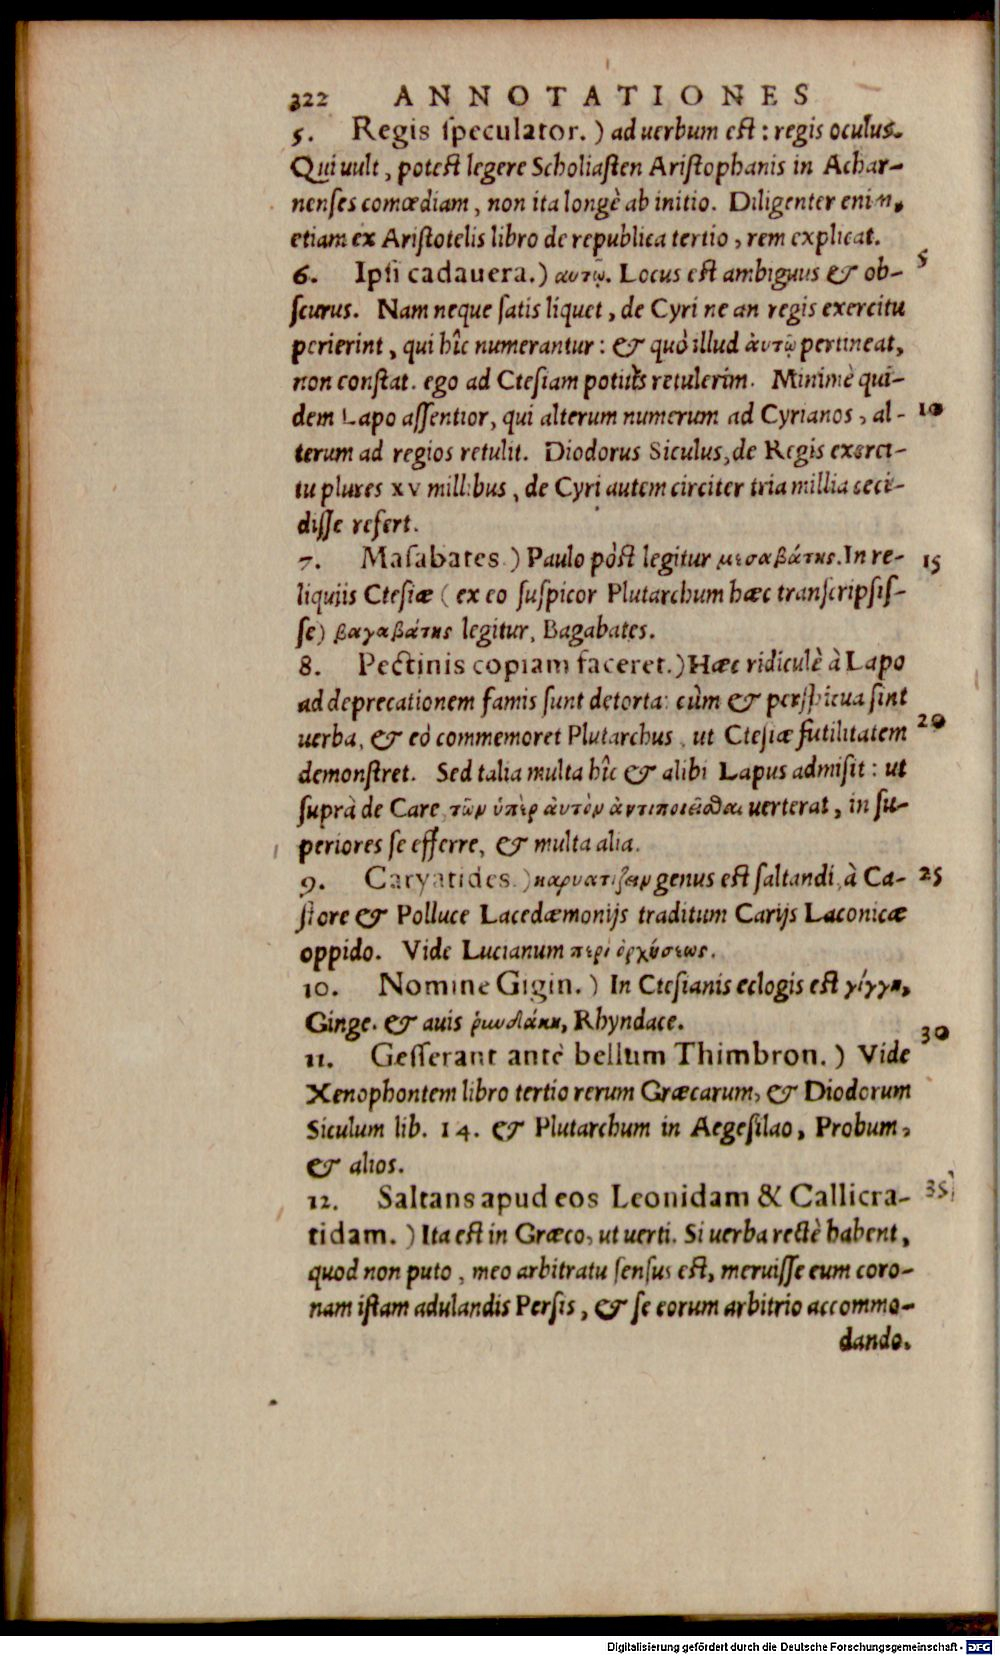 322 ANNOTATIONES
5. Regis ſpeculator.) ad uerbum eſt: regis oculus.
Qui uult, poteſt legere Scholiaſten Ariſtophanis in Achar-
nenſes comœdiam, non ita longè ab initio. Diligenter enim,
etiam ex Ariſtotelis libro de republica tertio, rem explicat.
6. Ipſi cadauera.) αυτῷ. Locus eſt ambiguus & ob- 5
ſcurus. Nam neque ſatis liquet, de Cyri ne an regis exercitu
perierint, qui hîc numerantur: & quò illud ἀυτῷ pertineat,
non conſtat. ego ad Cteſiam potiùs retulerim. Minimè qui-
dem Lapo aſſentior, qui alterum numerum ad Cyrianos, al- 10
terum ad regios retulit. Diodorus Siculus, de Regis exerci-
tu plures xv millibus, de Cyri autem circiter tria millia ceci-
diſſe refert.
7. Maſabates.) Paulo pòſt legitur μεσαβάτης. In re- 15
liquijs Cteſiæ (ex eo ſuſpicor Plutarchum hæc tranſcripſiſ-
ſe) βαγαβάτης legitur, Bagabates.
8. Pectinis copiam faceret.) Hæc ridiculè à Lapo
ad deprecationem famis ſunt detorta: cùm & perſpicua ſint
uerba, & eò commemoret Plutarchus, ut Cteſiæ futilitatem 20
demonſtret. Sed talia multa hîc & alibi Lapus admiſit: ut
ſuprà de Care, τῶν ὑπὲρ ἀυτὸν ἀντιποιεῖσθαι uerterat, in ſu-
periores ſe efferre, & multa alia.
9. Caryatides.) καρυατίζειν genus eſt ſaltandi, à Ca- 25
ſtore & Polluce Lacedæmonijs traditum Carijs Laconicæ
oppido. Vide Lucianum περὶ ὀρχήσεως.
10. Nomine Gigin.) In Cteſianis eclogis eſt γίγγη,
Ginge. & auis ῥυνδάκη, Rhyndace.
11. Geſſerant antè bellum Thimbron.) Vide 30
Xenophontem libro tertio rerum Græcarum, & Diodorum
Siculum lib. 14. & Plutarchum in Aegeſilao, Probum,
& alios.
12. Saltans apud eos Leonidam & Callicra- 35
tidam.) Ita eſt in Græco, ut uerti. Si uerba rectè habent,
quod non puto, meo arbitratu ſenſus eſt, meruiſſe eum coro-
nam iſtam adulandis Perſis, & ſe eorum arbitrio accommo-
dando.
Digitalisierung gefördert durch die Deutsche Forschungsgemeinschaft - DFG